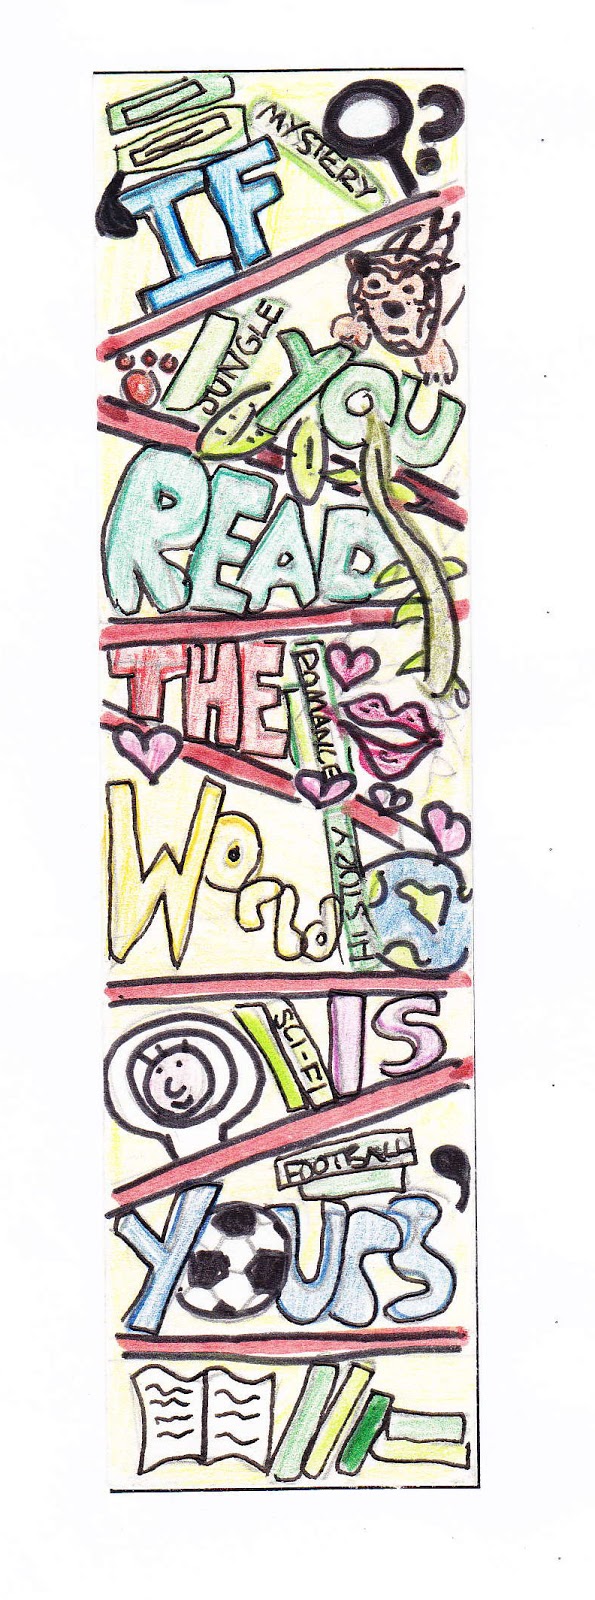 MYSTERY ?
IF
JUNGLE
YOU
READ
THE
ROMANCE
World
HISTORY
SCI-FI
IS
FOOTBALL
YOURS